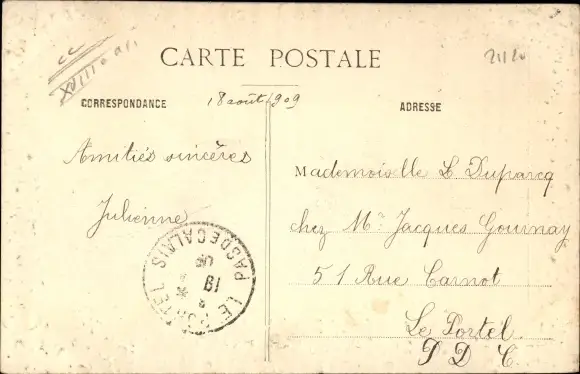 CARTE POSTALE
CORRESPONDANCE
18 août 1909
ADRESSE
Amitiés sincères
Julienne
Mademoiselle L. Duparcq
chez Mr Jacques Gournay
51 Rue Carnot
Le Portel
P D C
LE PORTEL
PAS DE CALAIS
19